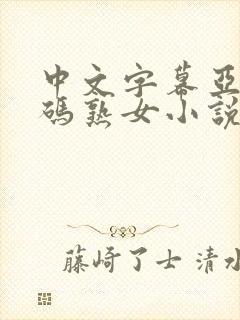 中文字幕亞
碼熟女小說
藤崎了士 清水